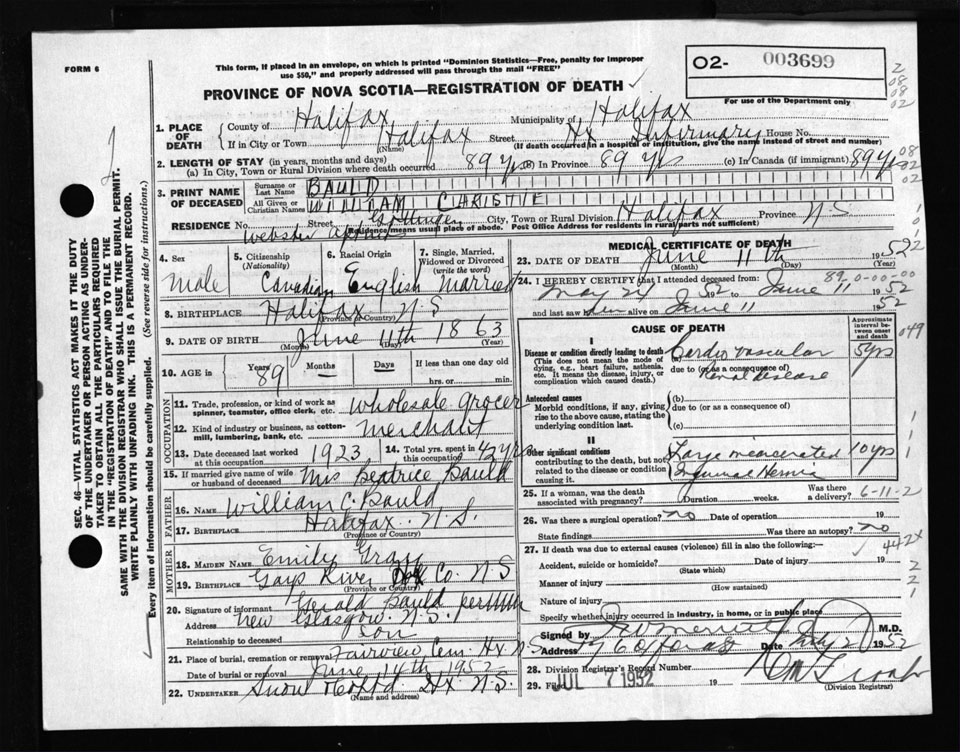 FORM 6
This form, if placed in an envelope, on which is printed "Dominion Statistics—Free, penalty for improper
use $50," and properly addressed will pass through the mail "FREE"
PROVINCE OF NOVA SCOTIA—REGISTRATION OF DEATH
O2- 003699
For use of the Department only
2
08
08
02
1. PLACE OF DEATH
County of Halifax Municipality of Halifax
If in City or Town Halifax Street Hx Infirmary House No.
(Name) (If death occurred in a hospital or institution, give the name instead of street and number)
2. LENGTH OF STAY (in years, months and days)
(a) In City, Town or Rural Division where death occurred 89 yrs (B) In Province 89 yrs (c) In Canada (if immigrant) 89 yrs
08
02
02
3. PRINT NAME OF DECEASED
Surname or Last Name BAULD
All Given or Christian Names WILLIAM CHRISTIE
RESIDENCE No. Webster Street Gottingen City, Town or Rural Division Halifax Province N S
Residence means usual place of abode. Post Office Address for residents in rural parts not sufficient)
4. Sex
Male
5. Citizenship (Nationality)
Canadian
6. Racial Origin
English
7. Single, Married, Widowed or Divorced (write the word)
Married
8. BIRTHPLACE Halifax N S
(Province or Country)
9. DATE OF BIRTH June 11th 1863
(Month) (Day) (Year)
10. AGE in Years 89 Months Days If less than one day old
hrs. or min.
OCCUPATION
11. Trade, profession, or kind of work as spinner, teamster, office clerk, etc. Wholesale grocer
12. Kind of industry or business, as cotten-mill, lumbering, bank, etc. Merchant
13. Date deceased last worked at this occupation 1923
14. Total yrs. spent in this occupation yrs
15. If married give name of wife or husband of deceased Mrs Beatrice Bauld
FATHER
16. NAME William C. Bauld
17. BIRTHPLACE Halifax. N.S.
(Province or Country)
MOTHER
18. MAIDEN NAME Emily Gray
19. BIRTHPLACE Gays River Co. N.S
(Province or Country)
20. Signature of informant Gerald Bauld per
Address New Glasgow. N.S.
Relationship to deceased son
21. Place of burial, cremation or removal Fairview Cem. Hx N.S
Date of burial or removal June 14th 1952
22. UNDERTAKER Snow Co Ltd. Hx. N.S.
(Name and address)
MEDICAL CERTIFICATE OF DEATH
23. DATE OF DEATH June 11th 1952
(Month) (Day) (Year)
89-0-00-00
24. I HEREBY CERTIFY that I attended deceased from:
May 24 1952 to June 11 1952
and last saw him alive on June 11 1952
CAUSE OF DEATH
Approximate interval between onset and death
049
I
Disease or condition directly leading to death
(This does not mean the mode of dying, e.g., heart failure, asthenia, etc. It means the disease, injury, or complication which caused death.)
(a) Cardio vascular 5 yrs
due to (or as a consequence of)
renal disease
Antecedent causes
Morbid conditions, if any, giving rise to the above cause, stating the underlying condition last.
(b)
due to (or as a consequence of)
(c)
II
Other significant conditions
contributing to the death, but not related to the disease or condition causing it.
Large incarcerated 10 yrs
Inguinal Hernia
25. If a woman, was the death associated with pregnancy? Duration weeks. Was there a delivery?
6-11-2
26. Was there a surgical operation? no Date of operation 19
State findings Was there an autopsy? no
27. If death was due to external causes (violence) fill in also the following:— 442X
Accident, suicide or homicide? Date of injury 19
(State which)
Manner of injury
(How sustained)
Nature of injury
Specify whether injury occurred in industry, in home, or in public place
Signed by M.D.
Address Date July 2 1952
28. Division Registrar's Record Number
29. Filed JUL 7 1952 19
(Division Registrar)
SEC. 46—VITAL STATISTICS ACT MAKES IT THE DUTY
OF THE UNDERTAKER OR PERSON ACTING AS UNDER-
TAKER TO OBTAIN ALL THE PARTICULARS REQUIRED
IN THE "REGISTRATION OF DEATH" AND TO FILE THE
SAME WITH THE DIVISION REGISTRAR WHO SHALL ISSUE THE BURIAL PERMIT.
WRITE PLAINLY WITH UNFADING INK. THIS IS A PERMANENT RECORD.
Every item of information should be carefully supplied. (See reverse side for instructions.)